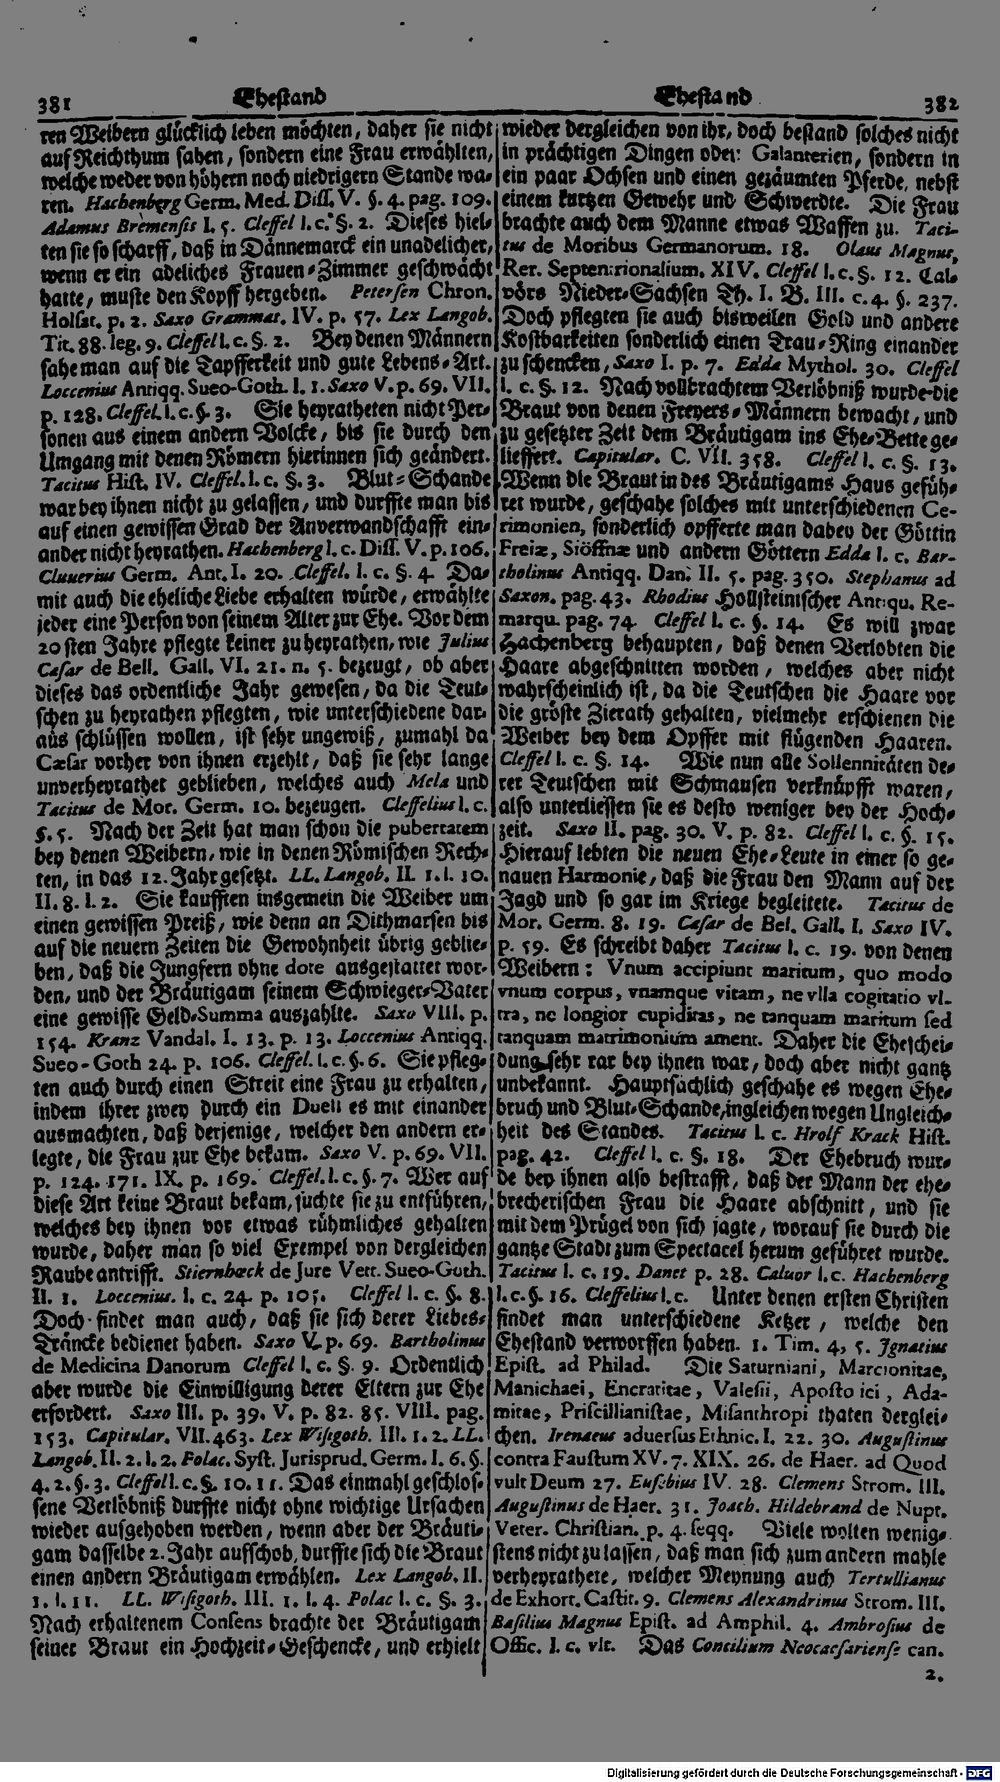 381 Ehestand
Ehestand 382
ren Weibern glücklich leben möchten, daher sie nicht
auf Reichthum sahen, sondern eine Frau erwählten,
welche weder von höhern noch niedrigern Stande wa-
ren. Hachenberg Germ. Med. Diss. V. §. 4. pag. 109.
Adamus Bremensis l. 5. Cleffel l. c. §. 2. Dieses hiel-
ten sie so scharff, daß in Dännemarck ein unadelicher,
wenn er ein adeliches Frauen-Zimmer geschwächt
hatte, muste den Kopff hergeben. Petersen Chron.
Holsat. p. 2. Saxo Grammat. IV. p. 57. Lex Langob.
Tit. 88. leg. 9. Cleffel l. c. §. 2. Bey denen Männern
sahe man auf die Tapfferkeit und gute Lebens-Art.
Loccenius Antiqq. Sueo-Goth. l. 1. Saxo V. p. 69. VII.
p. 128. Cleffel. l. c. §. 3. Sie heyratheten nicht Per-
sonen aus einem andern Volcke, bis sie durch den
Umgang mit denen Römern hierinnen sich geändert.
Tacitus Hist. IV. Cleffel. l. c. §. 3. Blut-Schande
war bey ihnen nicht zu gelassen, und durffte man bis
auf einen gewissen Grad der Anverwandschafft ein-
ander nicht heyrathen. Hachenberg l. c. Diss. V. p. 106.
Cluuerius Germ. Ant. I. 20. Cleffel. l. c. §. 4 Da-
mit auch die eheliche Liebe erhalten würde, erwählte
jeder eine Person von seinem Alter zur Ehe. Vor dem
20sten Jahre pflegte keiner zu heyrathen, wie Julius
Cæsar de Bell. Gall. VI. 21. n. 5. bezeugt, ob aber
dieses das ordentliche Jahr gewesen, da die Teut-
schen zu heyrathen pflegten, wie unterschiedene dar-
aus schlüssen wollen, ist sehr ungewiß, zumahl da
Cæsar vorher von ihnen erzehlt, daß sie sehr lange
unverheyrathet geblieben, welches auch Mela und
Tacitus de Mor. Germ. 10. bezeugen. Cleffelius l. c.
§. 5. Nach der Zeit hat man schon die pubertatem
bey denen Weibern, wie in denen Römischen Rech-
ten, in das 12. Jahr gesetzt. LL. Langob. II 1. l. 10.
II. 8. l. 2. Sie kaufften insgemein die Weiber um
einen gewissen Preiß, wie denn an Dithmarsen bis
auf die neuern Zeiten die Gewohnheit übrig geblie-
ben, daß die Jungfern ohne dote ausgestattet wor-
den, und der Bräutigam seinem Schwieger-Vater
eine gewisse Geld-Summa auszahlte. Saxo VIII. p.
154. Kranz Vandal. I. 13. p. 13. Loccenius Antiqq.
Sueo-Goth 24. p. 106. Cleffel. l. c. §. 6. Sie pfleg-
ten auch durch einen Streit eine Frau zu erhalten,
indem ihrer zwey durch ein Duell es mit einander
ausmachten, daß derjenige, welcher den andern er-
legte, die Frau zur Ehe bekam. Saxo V. p. 69. VII.
p. 124. 171. IX. p. 169. Cleffel. l. c. §. 7. Wer auf
diese Art keine Braut bekam, suchte sie zu entführen,
welches bey ihnen vor etwas rühmliches gehalten
wurde, daher man so viel Exempel von dergleichen
Raube antrifft. Stiernhœck de Jure Vett. Sueo-Goth.
II. 1. Loccenius. l. c. 24. p. 105. Cleffel l. c. §. 8.
Doch findet man auch, daß sie sich derer Liebes-
Träncke bedienet haben. Saxo V. p. 69. Bartholinus
de Medicina Danorum Cleffel l. c. §. 9. Ordentlich
aber wurde die Einwilligung derer Eltern zur Ehe
erfordert. Saxo III. p. 39. V. p. 82. 85. VIII. pag.
153. Capitular. VII. 463. Lex Wisigoth. III. 1. 2. LL.
Langob. II. 2. l. 2. Polac. Syst. Jurisprud. Germ. I. 6. §.
4. 2. §. 3. Cleffel l. c. §. 10. 11. Das einmahl geschlos-
sene Verlöbniß durffte nicht ohne wichtige Ursachen
wieder aufgehoben werden, wenn aber der Bräuti-
gam dasselbe 2. Jahr aufschob, durffte sich die Braut
einen andern Bräutigam erwählen. Lex Langob. II.
1. l. 11. LL. Wisigoth. III. 1. l. 4. Polac l. c. §. 3.
Nach erhaltenem Consens brachte der Bräutigam
seiner Braut ein Hochzeit-Geschencke, und erhielt
wieder dergleichen von ihr, doch bestand solches nicht
in prächtigen Dingen oder Galanterien, sondern in
ein paar Ochsen und einen gezäumten Pferde, nebst
einem kurtzen Gewehr und Schwerdte. Die Frau
brachte auch dem Manne etwas Waffen zu. Taci-
tus de Moribus Germanorum. 18. Olaus Magnus,
Rer. Septentrionalium. XIV. Cleffel l. c. §. 12. Cal-
vörs Nieder-Sachsen Th. I. B. III. c. 4. §. 237.
Doch pflegten sie auch bisweilen Gold und andere
Kostbarkeiten sonderlich einen Trau-Ring einander
zu schencken, Saxo I. p. 7. Edda Mythol. 30. Cleffel
l. c. §. 12. Nach vollbrachtem Verlöbniß wurde die
Braut von denen Freyers-Männern bewacht, und
zu gesetzter Zeit dem Bräutigam ins Ehe-Bette ge-
lieffert. Capitular. C. VII. 358. Cleffel l. c. §. 13.
Wenn die Braut in des Bräutigams Haus gefüh-
ret wurde, geschahe solches mit unterschiedenen Ce-
rimonien, sonderlich opfferte man dabey der Göttin
Freiæ, Siöffnæ und andern Göttern Edda l. c. Bar-
tholinus Antiqq. Dan. II. 5. pag. 350. Stephanus ad
Saxon. pag. 43. Rhodius Hollsteinischer Antiqu. Re-
marqu. pag. 74 Cleffel l. c. §. 14. Es will zwar
Hachenberg behaupten, daß denen Verlobten die
Haare abgeschnitten worden, welches aber nicht
wahrscheinlich ist, da die Teutschen die Haare vor
die gröste Zierath gehalten, vielmehr erschienen die
Weiber bey dem Opffer mit flügenden Haaren.
Cleffel l. c. §. 14. Wie nun alle Sollennitäten de-
rer Teutschen mit Schmausen verknüpfft waren,
also unterliessen sie es desto weniger bey der Hoch-
zeit. Saxo II. pag. 30. V. p. 82. Cleffel l. c. §. 15.
Hierauf lebten die neuen Ehe-Leute in einer so ge-
nauen Harmonie, daß die Frau den Mann auf der
Jagd und so gar im Kriege begleitete. Tacitus de
Mor. Germ. 8. 19. Cæsar de Bel. Gall. I. Saxo IV.
p. 59. Es schreibt daher Tacitus l. c. 19. von denen
Weibern: Vnum accipiunt maritum, quo modo
vnum corpus, vnamque vitam, ne vlla cogitatio vl-
tra, ne longior cupiditas, ne tanquam maritum sed
tanquam matrimonium ament. Daher die Eheschei-
dung sehr rar bey ihnen war, doch aber nicht gantz
unbekannt. Hauptsächlich geschahe es wegen Ehe-
bruch und Blut-Schande, ingleichen wegen Ungleich-
heit des Standes. Tacitus l. c. Hrolf Krack Hist.
pag. 42. Cleffel l. c. §. 18. Der Ehebruch wur-
de bey ihnen also bestrafft, daß der Mann der ehe-
brecherischen Frau die Haare abschnitt, und sie
mit dem Prügel von sich jagte, worauf sie durch die
gantze Stadt zum Spectacel herum geführet wurde.
Tacitus l. c. 19. Danet p. 28. Caluor l. c. Hachenberg
l. c. §. 16. Cleffelius l. c. Unter denen ersten Christen
findet man unterschiedene Ketzer, welche den
Ehestand verworffen haben. 1. Tim. 4, 5. Ignatius
Epist. ad Philad. Die Saturniani, Marcionitae,
Manichaei, Encratitae, Valesii, Apostolici, Ada-
mitae, Priscillianistae, Misanthropi thaten derglei-
chen. Irenaeus aduersus Ethnic. I. 22. 30. Augustinus
contra Faustum XV. 7. XIX. 26. de Haer. ad Quod
vult Deum 27. Eusebius IV. 28. Clemens Strom. III.
Augustinus de Haer. 31. Joach. Hildebrand de Nupt.
Veter. Christian. p. 4. seqq. Viele wolten wenig-
stens nicht zu lassen, daß man sich zum andern mahle
verheyrathete, welcher Meynung auch Tertullianus
de Exhort. Castit. 9. Clemens Alexandrinus Strom. III.
Basilius Magnus Epist. ad Amphil. 4. Ambrosius de
Offic. l. c. vlt. Das Concilium Neocaesariense can.
2.
Digitalisierung gefördert durch die Deutsche Forschungsgemeinschaft - DFG